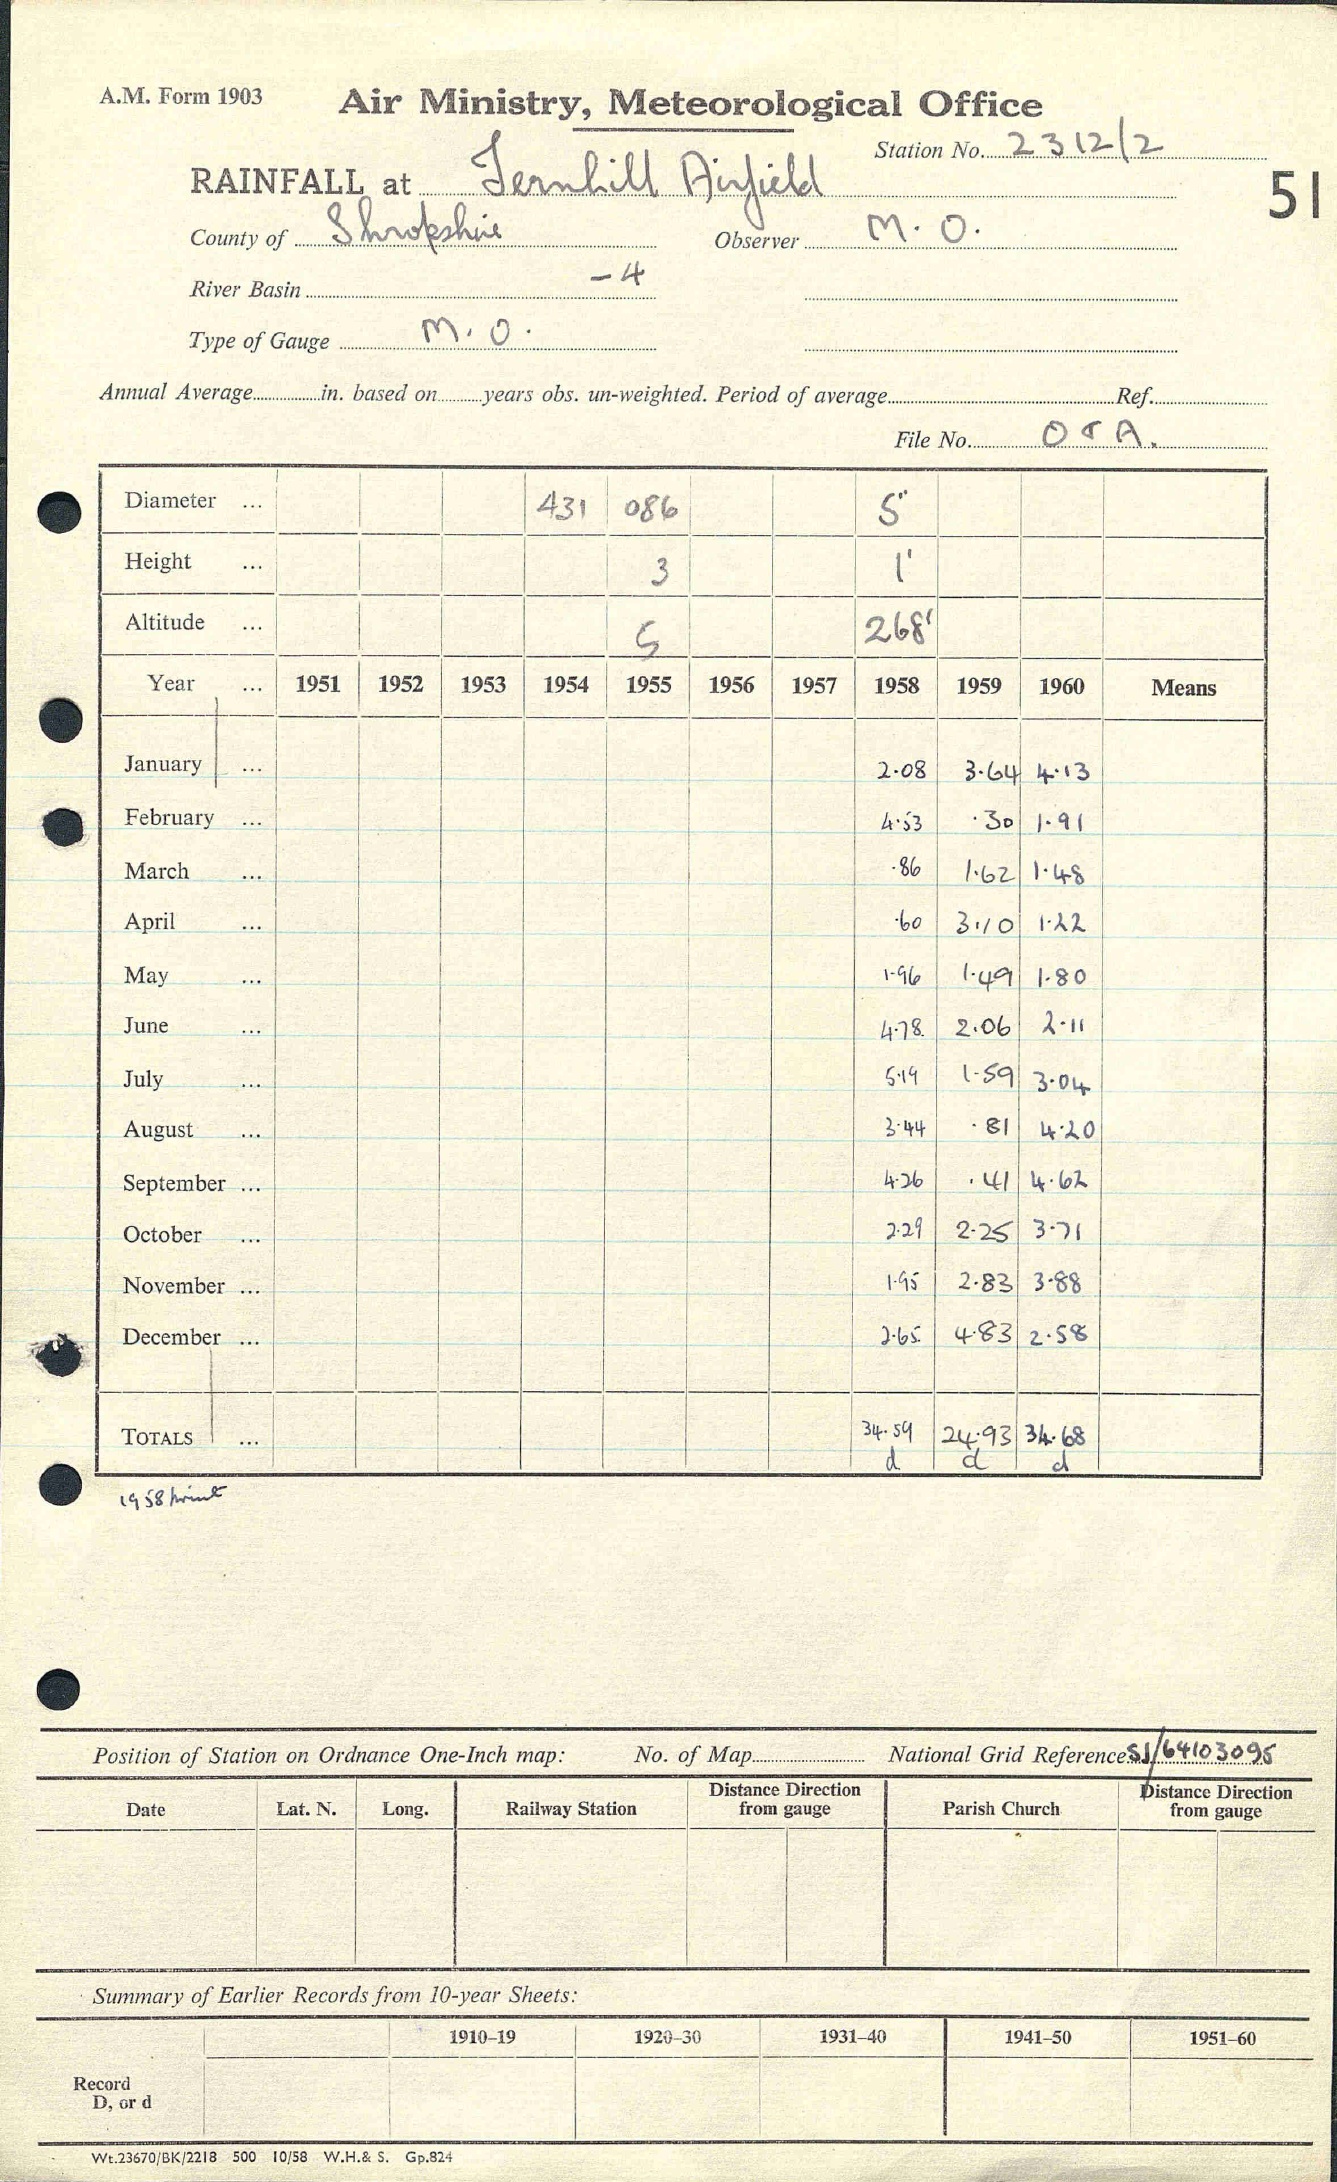 A.M. Form 1903
Air Ministry, Meteorological Office
Station No. 2312/2
RAINFALL at Ternhill Airfield
51
County of Shropshire Observer M. O.
River Basin -4
Type of Gauge M. O.
Annual Average in. based on years obs. un-weighted. Period of average Ref.
File No. O & A.
Diameter ... 431 086 5"
Height ... 3 1'
Altitude ... 5 268'
Year ... 1951 1952 1953 1954 1955 1956 1957 1958 1959 1960 Means
January ... 2.08 3.64 4.13
February ... 4.53 .30 1.91
March ... .86 1.62 1.48
April ... .60 3.10 1.22
May ... 1.96 1.49 1.80
June ... 4.78 2.06 2.11
July ... 5.19 1.59 3.04
August ... 3.44 .81 4.20
September ... 4.26 .41 4.62
October ... 2.29 2.25 3.71
November ... 1.95 2.83 3.88
December ... 2.65 4.83 2.58
TOTALS ... 34.59 24.93 34.68
d d d
1958 print
Position of Station on Ordnance One-Inch map: No. of Map National Grid Reference SJ/64103095
Date Lat. N. Long. Railway Station Distance Direction from gauge Parish Church Distance Direction from gauge
Summary of Earlier Records from 10-year Sheets:
1910–19 1920–30 1931–40 1941–50 1951–60
Record
D, or d
Wt.23670/BK/2218 500 10/58 W.H.& S. Gp.824